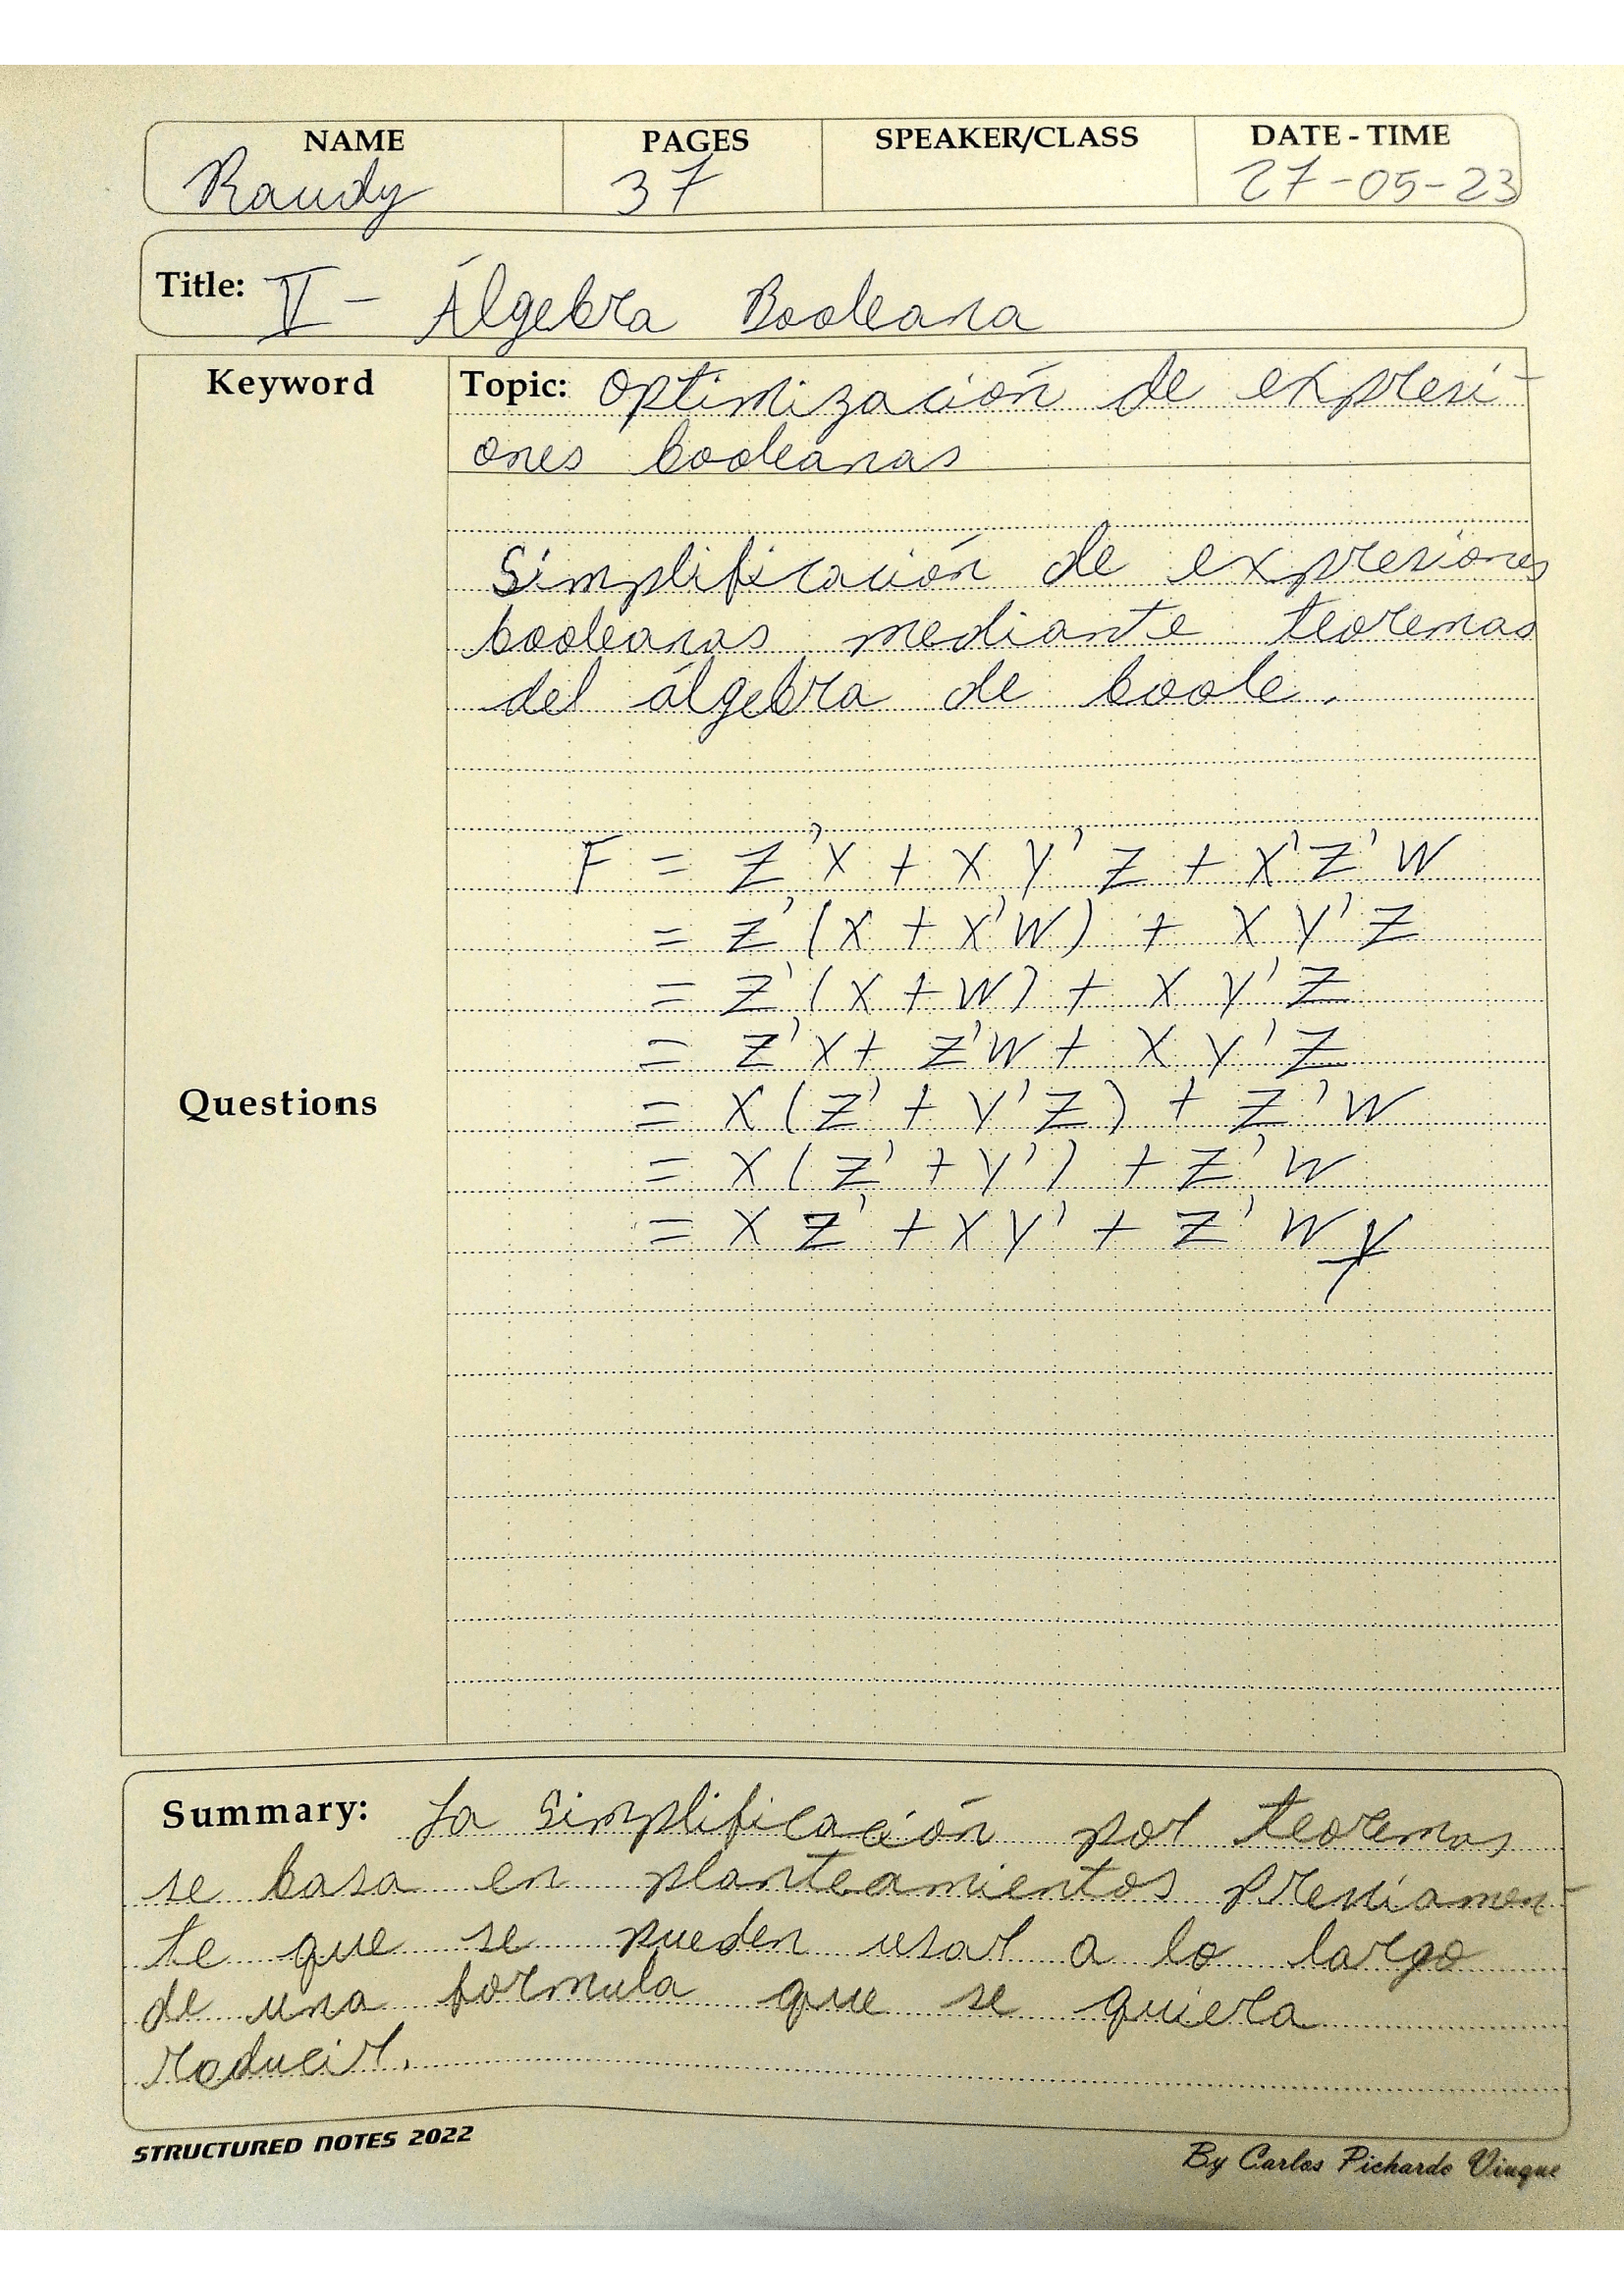 NAME PAGES SPEAKER/CLASS DATE - TIME
Raudy 37 27-05-23
Title: V - Álgebra Booleana
Keyword
Topic: Optimización de expresi-
ones booleanas
Simplificación de expresiones
booleanas mediante teoremas
del álgebra de boole.
F = Z'X + X Y' Z + X'Z'W
= Z'(X + X'W) + X Y' Z
= Z'(X + W) + X Y' Z
= Z'X + Z'W + X Y' Z
Questions
= X(Z' + Y'Z) + Z'W
= X(Z' + Y') + Z'W
= X Z' + X Y' + Z' W
Summary: La simplificación por teoremas
se basa en planteamientos previamen-
te que se pueden usar a lo largo
de una formula que se quiera
reducir.
STRUCTURED NOTES 2022
By Carlos Pichardo Viuque